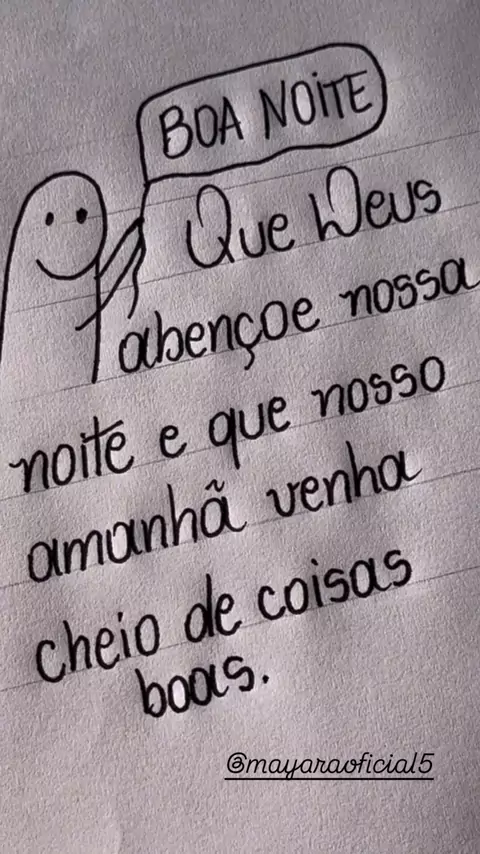 BOA NOITE
Que Deus
abençoe nossa
noite e que nosso
amanhã venha
cheio de coisas
boas.
@mayaraoficial5